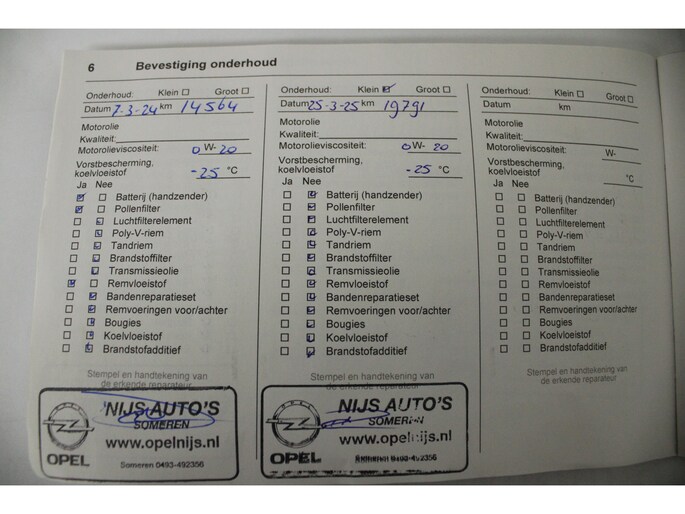 6 Bevestiging onderhoud
Onderhoud: Klein Groot
Datum 7-3-24 km 14564
Motorolie
Kwaliteit:
Motorolieviscositeit: 0 W- 20
Vorstbescherming,
koelvloeistof -25 °C
Ja Nee
Batterij (handzender)
Pollenfilter
Luchtfilterelement
Poly-V-riem
Tandriem
Brandstoffilter
Transmissieolie
Remvloeistof
Bandenreparatieset
Remvoeringen voor/achter
Bougies
Koelvloeistof
Brandstofadditief
Stempel en handtekening van
de erkende reparateur
NIJS AUTO'S
SOMEREN
www.opelnijs.nl
OPEL Someren 0493-492356
Onderhoud: Klein Groot
Datum 25-3-25 km 19791
Motorolie
Kwaliteit:
Motorolieviscositeit: 0 W- 20
Vorstbescherming,
koelvloeistof -25 °C
Ja Nee
Batterij (handzender)
Pollenfilter
Luchtfilterelement
Poly-V-riem
Tandriem
Brandstoffilter
Transmissieolie
Remvloeistof
Bandenreparatieset
Remvoeringen voor/achter
Bougies
Koelvloeistof
Brandstofadditief
Stempel en handtekening van
de erkende reparateur
NIJS AUTO'S
SOMEREN
www.opelnijs.nl
OPEL Someren 0493-492356
Onderhoud: Klein Groot
Datum km
Motorolie
Kwaliteit:
Motorolieviscositeit: W-
Vorstbescherming,
koelvloeistof °C
Ja Nee
Batterij (handzender)
Pollenfilter
Luchtfilterelement
Poly-V-riem
Tandriem
Brandstoffilter
Transmissieolie
Remvloeistof
Bandenreparatieset
Remvoeringen voor/achter
Bougies
Koelvloeistof
Brandstofadditief
Stempel en handtekening van
de erkende reparateur